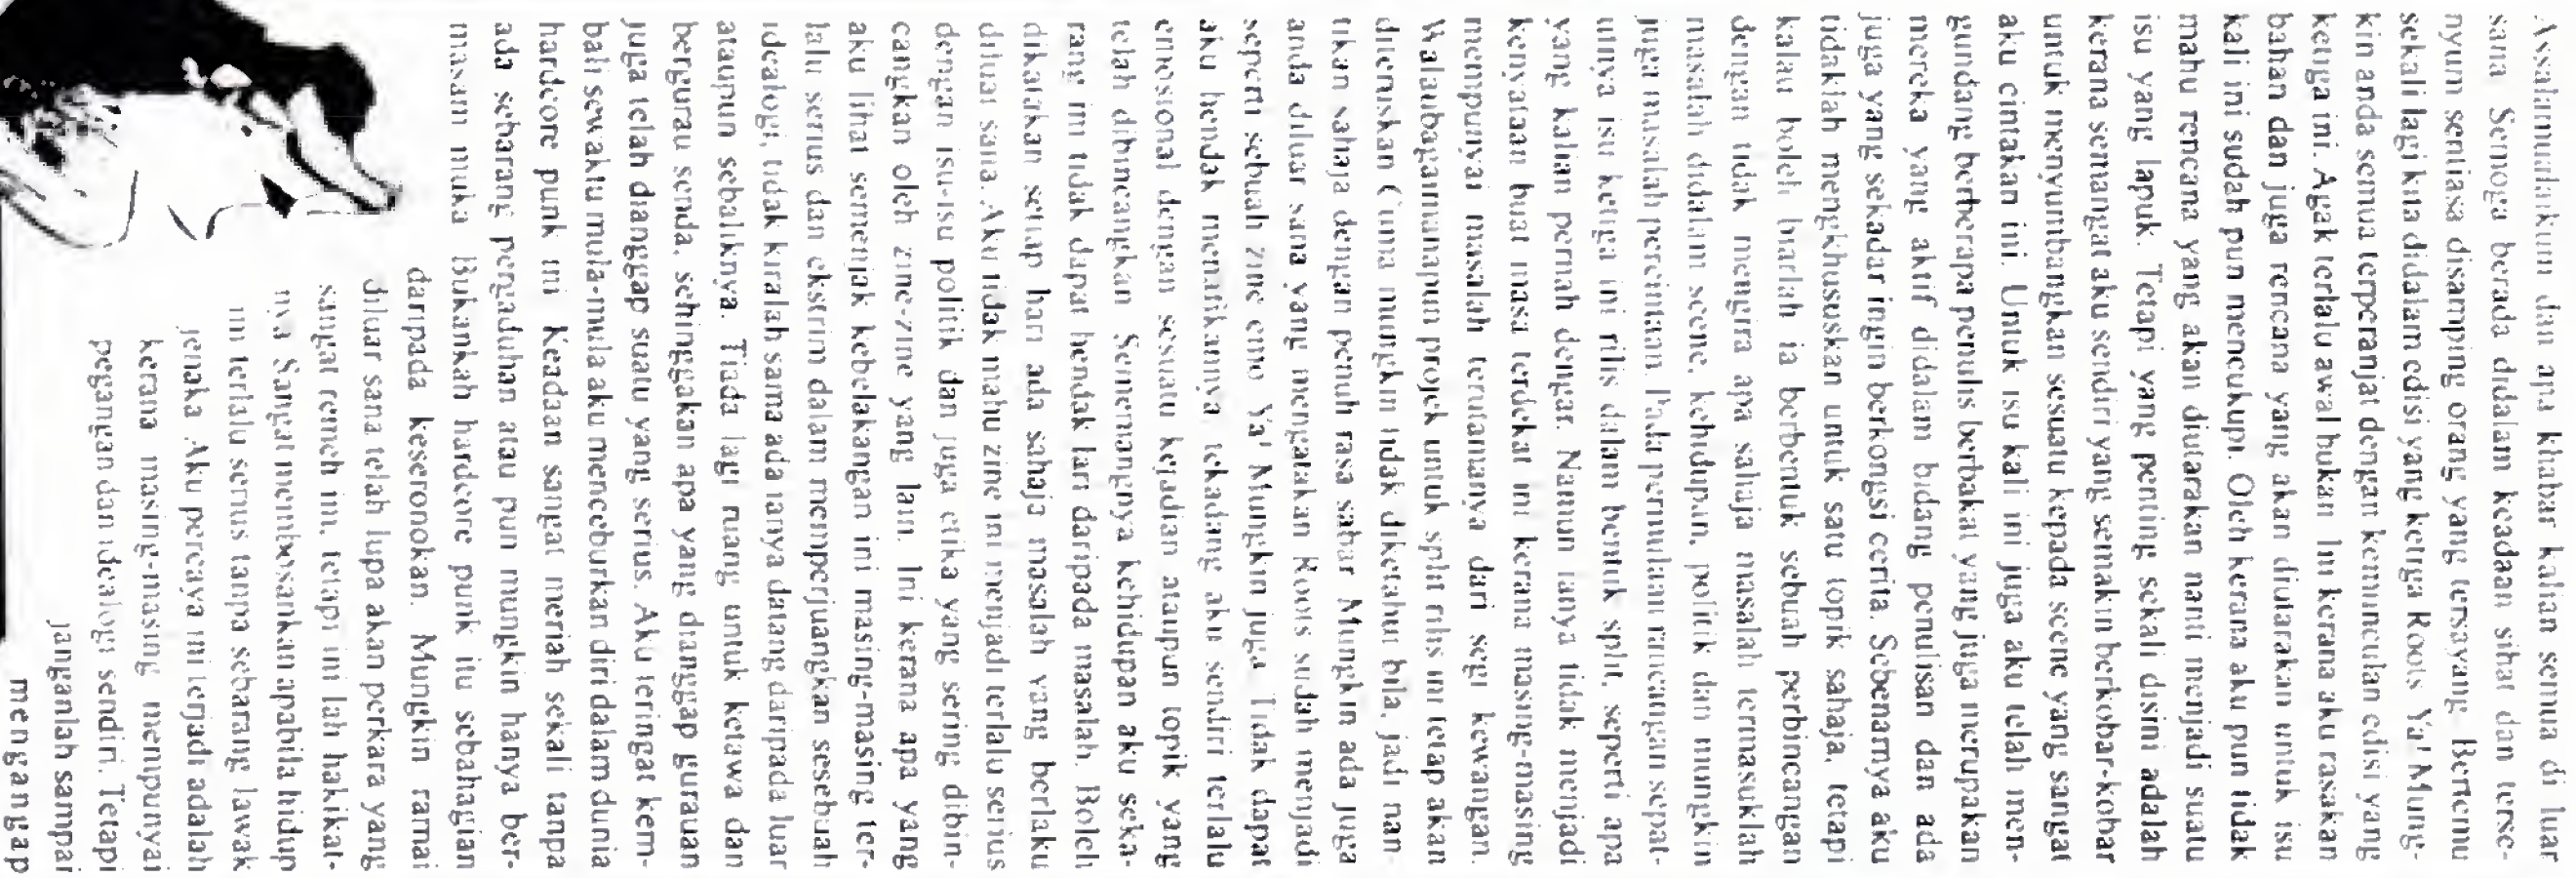 Assalamualaikum dan apa khabar kalian semua di luar
sana. Semoga berada didalam keadaan sihat dan terse-
nyum sentiasa disamping orang yang tersayang. Bertemu
sekali lagi kita didalam edisi yang ketiga Roots Ya! Mung-
kin anda semua terperanjat dengan kemunculan edisi yang
ketiga ini. Agak terlalu awal bukan. Ini kerana aku rasakan
bahan dan juga rencana yang akan diutarakan untuk isu
kali ini sudah pun mencukupi. Oleh kerana aku pun tidak
mahu rencana yang akan diutarakan nanti menjadi suatu
isu yang lapuk. Tetapi yang penting sekali disini adalah
kerana semangat aku sendiri yang semakin berkobar-kobar
untuk menyumbangkan sesuatu kepada scene yang sangat
aku cintakan ini. Untuk isu kali ini juga aku telah men-
gundang berberapa penulis berbakat yang juga merupakan
mereka yang aktif didalam bidang penulisan dan ada
juga yang sekadar ingin berkongsi cerita. Sebenarnya aku
tidaklah mengkhususkan untuk satu topik sahaja, tetapi
kalau boleh biarlah ia berbentuk sebuah perbincangan
dengan tidak mengira apa sahaja masalah termasuklah
masalah didalam scene, kehidupan, politik dan mungkin
juga masalah percintaan. Pada permulaan rancangan sepat-
utnya isu ketiga ini rilis dalam bentuk split, seperti apa
yang kalian pernah dengar. Namun ianya tidak menjadi
kenyataan buat masa terdekat ini kerana masing-masing
mempunyai masalah terutamanya dari segi kewangan.
Walaubagaimanapun projek untuk split rilis ini tetap akan
diteruskan. Cuma mungkin tidak diketahui bila, jadi nan-
tikan sahaja dengan penuh rasa sabar. Mungkin ada juga
anda diluar sana yang mengatakan Roots sudah menjadi
seperti sebuah zine emo. Ya! Mungkin juga. Tidak dapat
aku hendak menafikannya, tekadang aku sendiri terlalu
emosional dengan sesuatu kejadian ataupun topik yang
telah dibincangkan. Sememangnya kehidupan aku seka-
rang ini tidak dapat hendak lari daripada masalah. Boleh
dikatakan setiap hari ada sahaja masalah yang berlaku
diluar sana. Aku tidak mahu zine ini menjadi terlalu serius
dengan isu-isu politik dan juga etika yang sering dibin-
cangkan oleh zine-zine yang lain. Ini kerana apa yang
aku lihat semenjak kebelakangan ini masing-masing ter-
lalu serius dan ekstrim dalam memperjuangkan sesebuah
idealogi, tidak kiralah sama ada ianya datang daripada luar
ataupun sebaliknya. Tiada lagi ruang untuk ketawa dan
bergurau senda, sehinggakan apa yang dianggap gurauan
juga telah dianggap suatu yang serius. Aku teringat kem-
bali sewaktu mula-mula aku menceburkan diri dalam dunia
hardcore punk ini. Keadaan sangat meriah sekali tanpa
ada sebarang pergaduhan atau pun mungkin hanya ber-
masam muka. Bukankah hardcore punk itu sebahagian
daripada keseronokan. Mungkin ramai
diluar sana telah lupa akan perkara yang
sangat remeh ini, tetapi ini lah hakikat-
nya. Sangat membosankan apabila hidup
ini terlalu serius tanpa sebarang lawak
jenaka. Aku percaya ini terjadi adalah
kerana masing-masing mempunyai
pegangan dan idealogi sendiri. Tetapi
janganlah sampai
mengangap